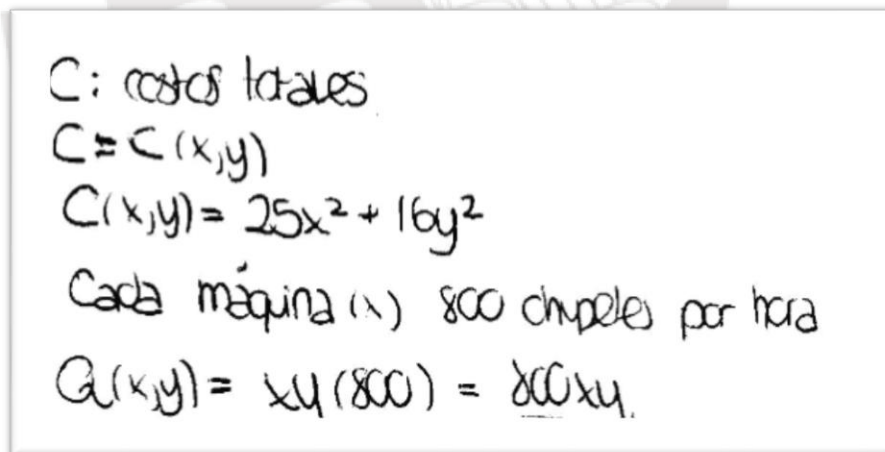 C: costos totales
C = C(x,y)
C(x,y) = 25x² + 16y²
Cada máquina (x) 800 chupetes por hora
Q(x,y) = xy (800) = 800xy.